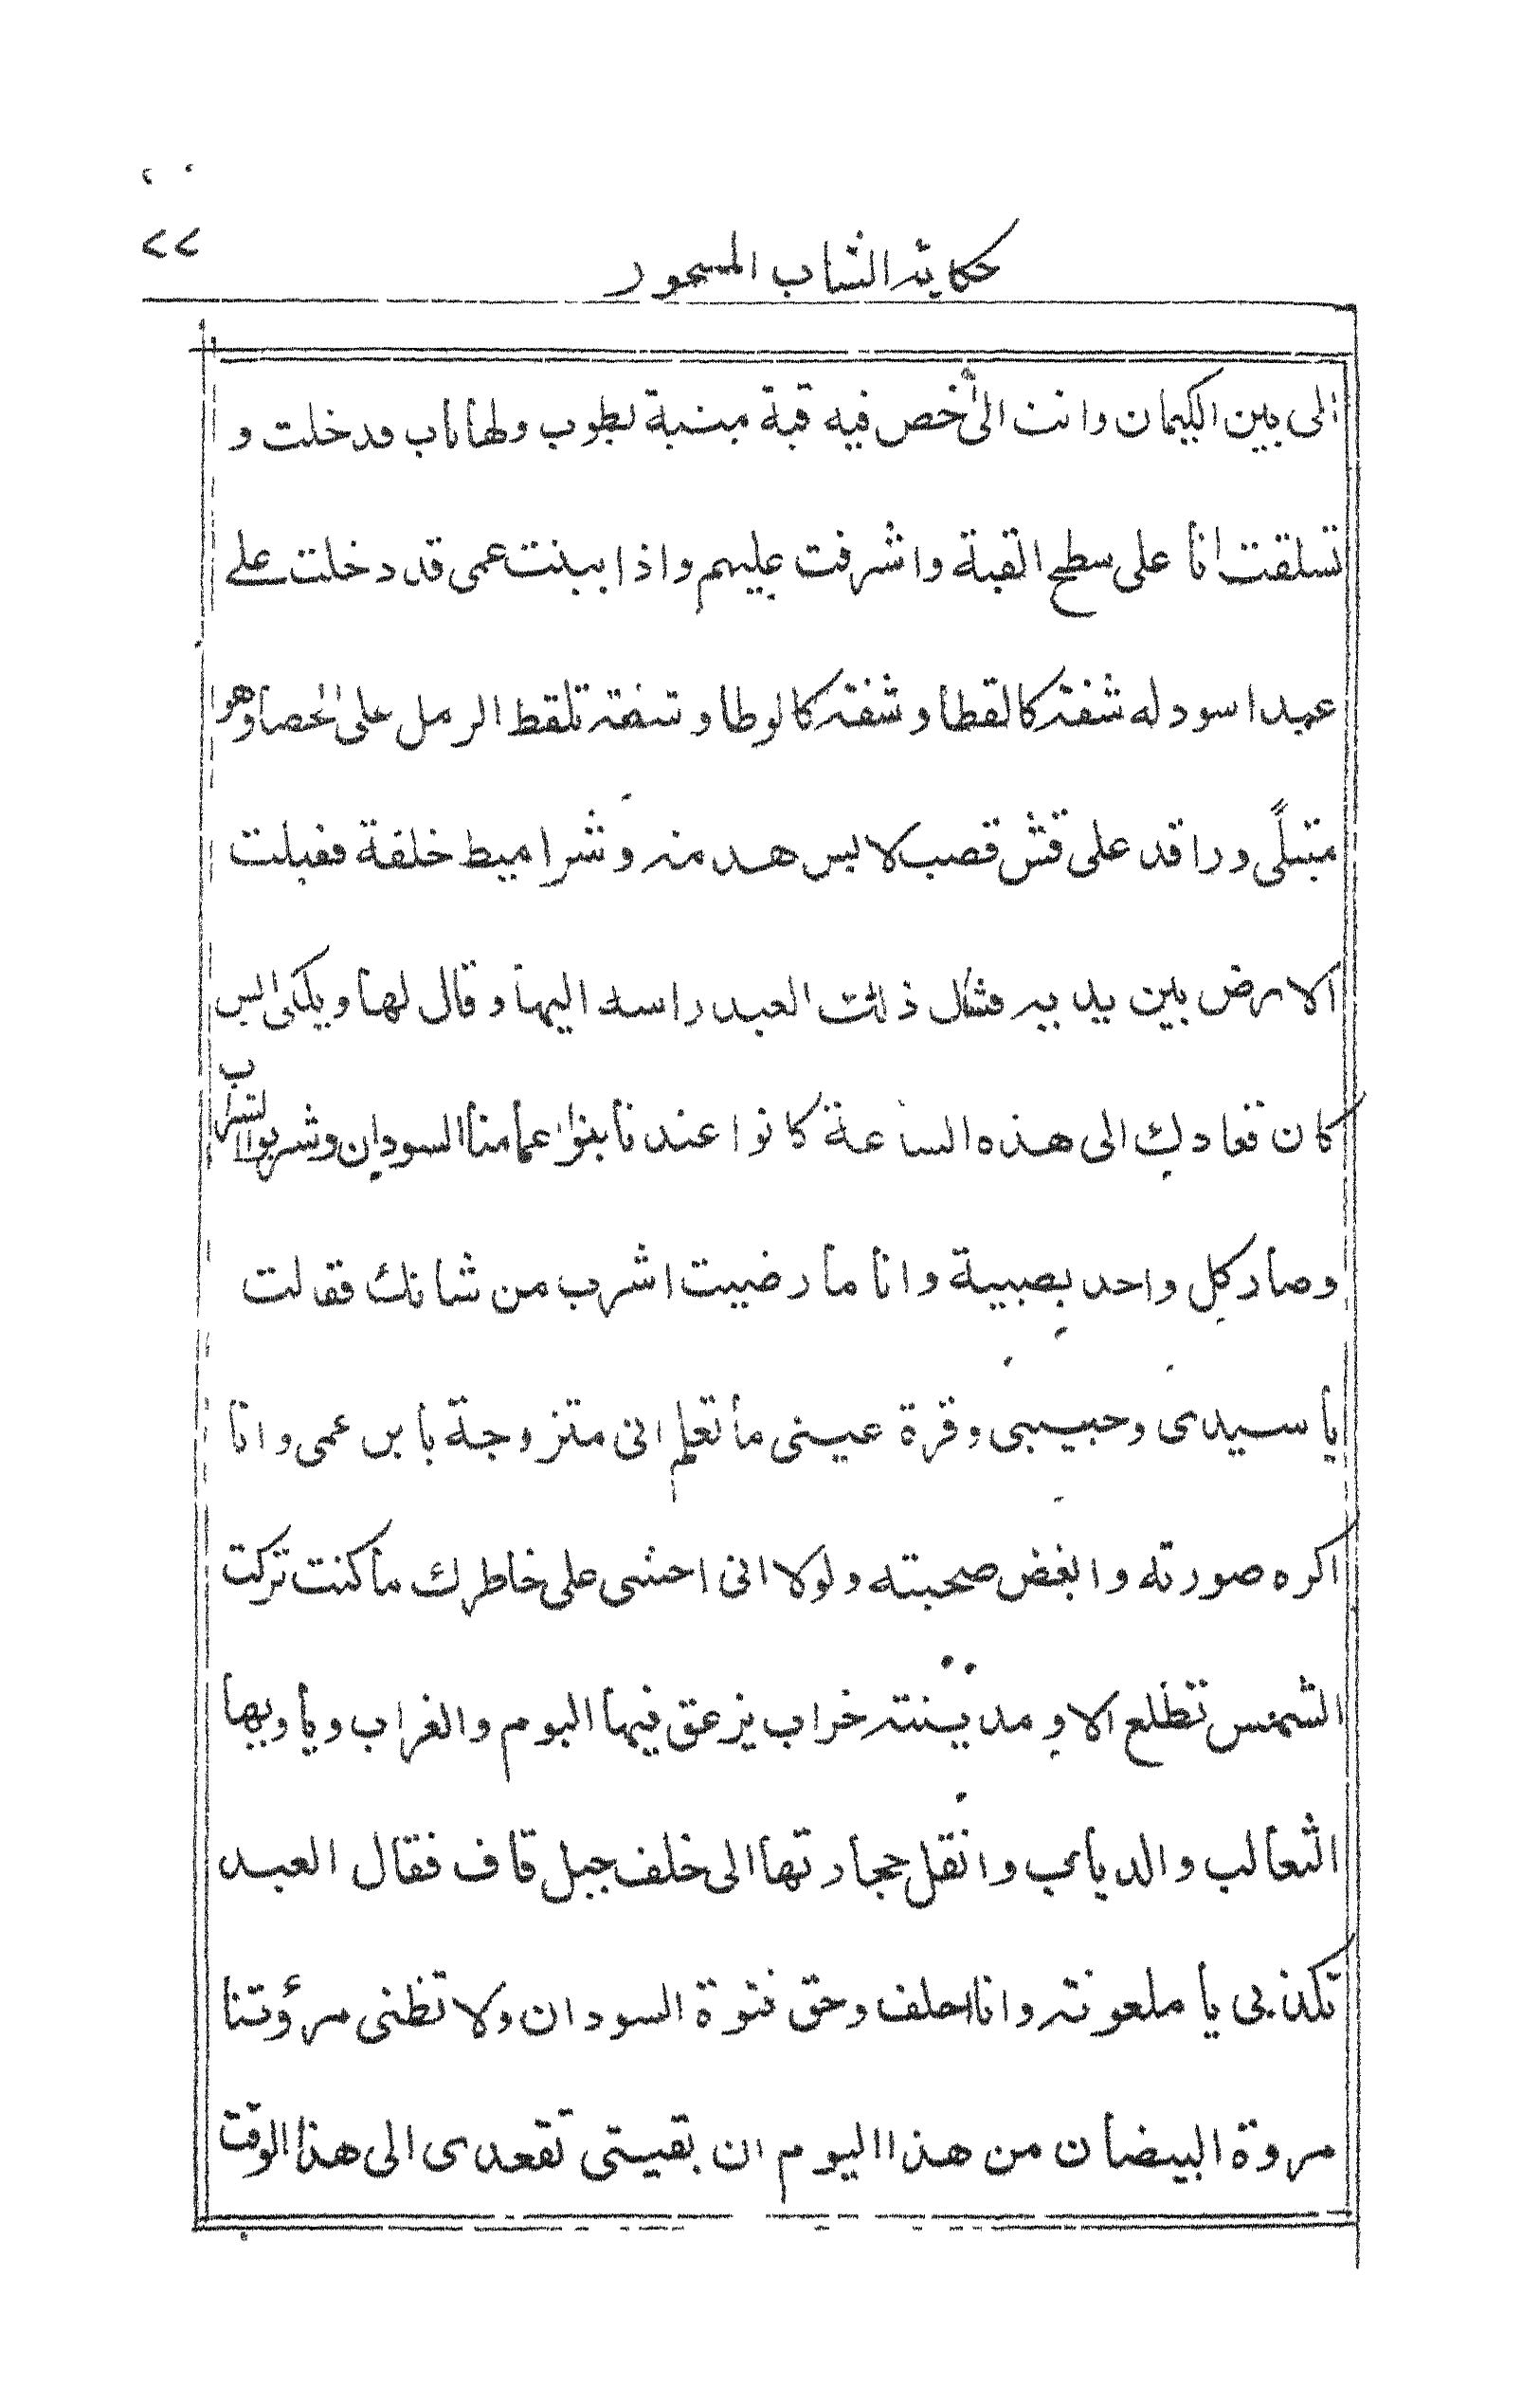 ٧٧
حكاية الشاب المسحور
الى بين الكيمان واتت الى خص فيه قبة مبنية بطوب ولها باب فدخلت و
تسلقت انا على سطح القبة واشرفت عليهم واذا ببنت عمى قد دخلت على
عبد اسود له شفة كالغطا وشفة كالوطا وشفة تلقط الرمل على الحصا وهو
مبتلى وراقد على قش قصب لابس هدمة وشراميط خلقة فقبلت
الارض بين يديه فشال ذلك العبد راسه اليها وقال لها ويلكى ايس
كان قعادك الى هذه الساعة كانوا عندنا بنوا عمامنا السودان وشربوا الشراب
وصار كل واحد بصبية وانا ما رضيت اشرب من شانك فقالت
يا سيدى وحبيبى وقرة عينى ما تعلم انى متزوجة بابن عمى وانا
اكره صورته وابغض صحبته ولولا انى احشى على خاطرك ما كنت تركت
الشمس تطلع الا و مدينته خراب يزعق فيها البوم والغراب وياويها
الثعالب والدياب وانقل حجارتها الى خلف جبل قاف فقال العبد
تكذبى يا ملعونة وانا احلف وحق فتوة السودان ولا تظنى مرؤتنا
مروة البيضان من هذا اليوم ان بقيتى تقعدى الى هذا الوقت